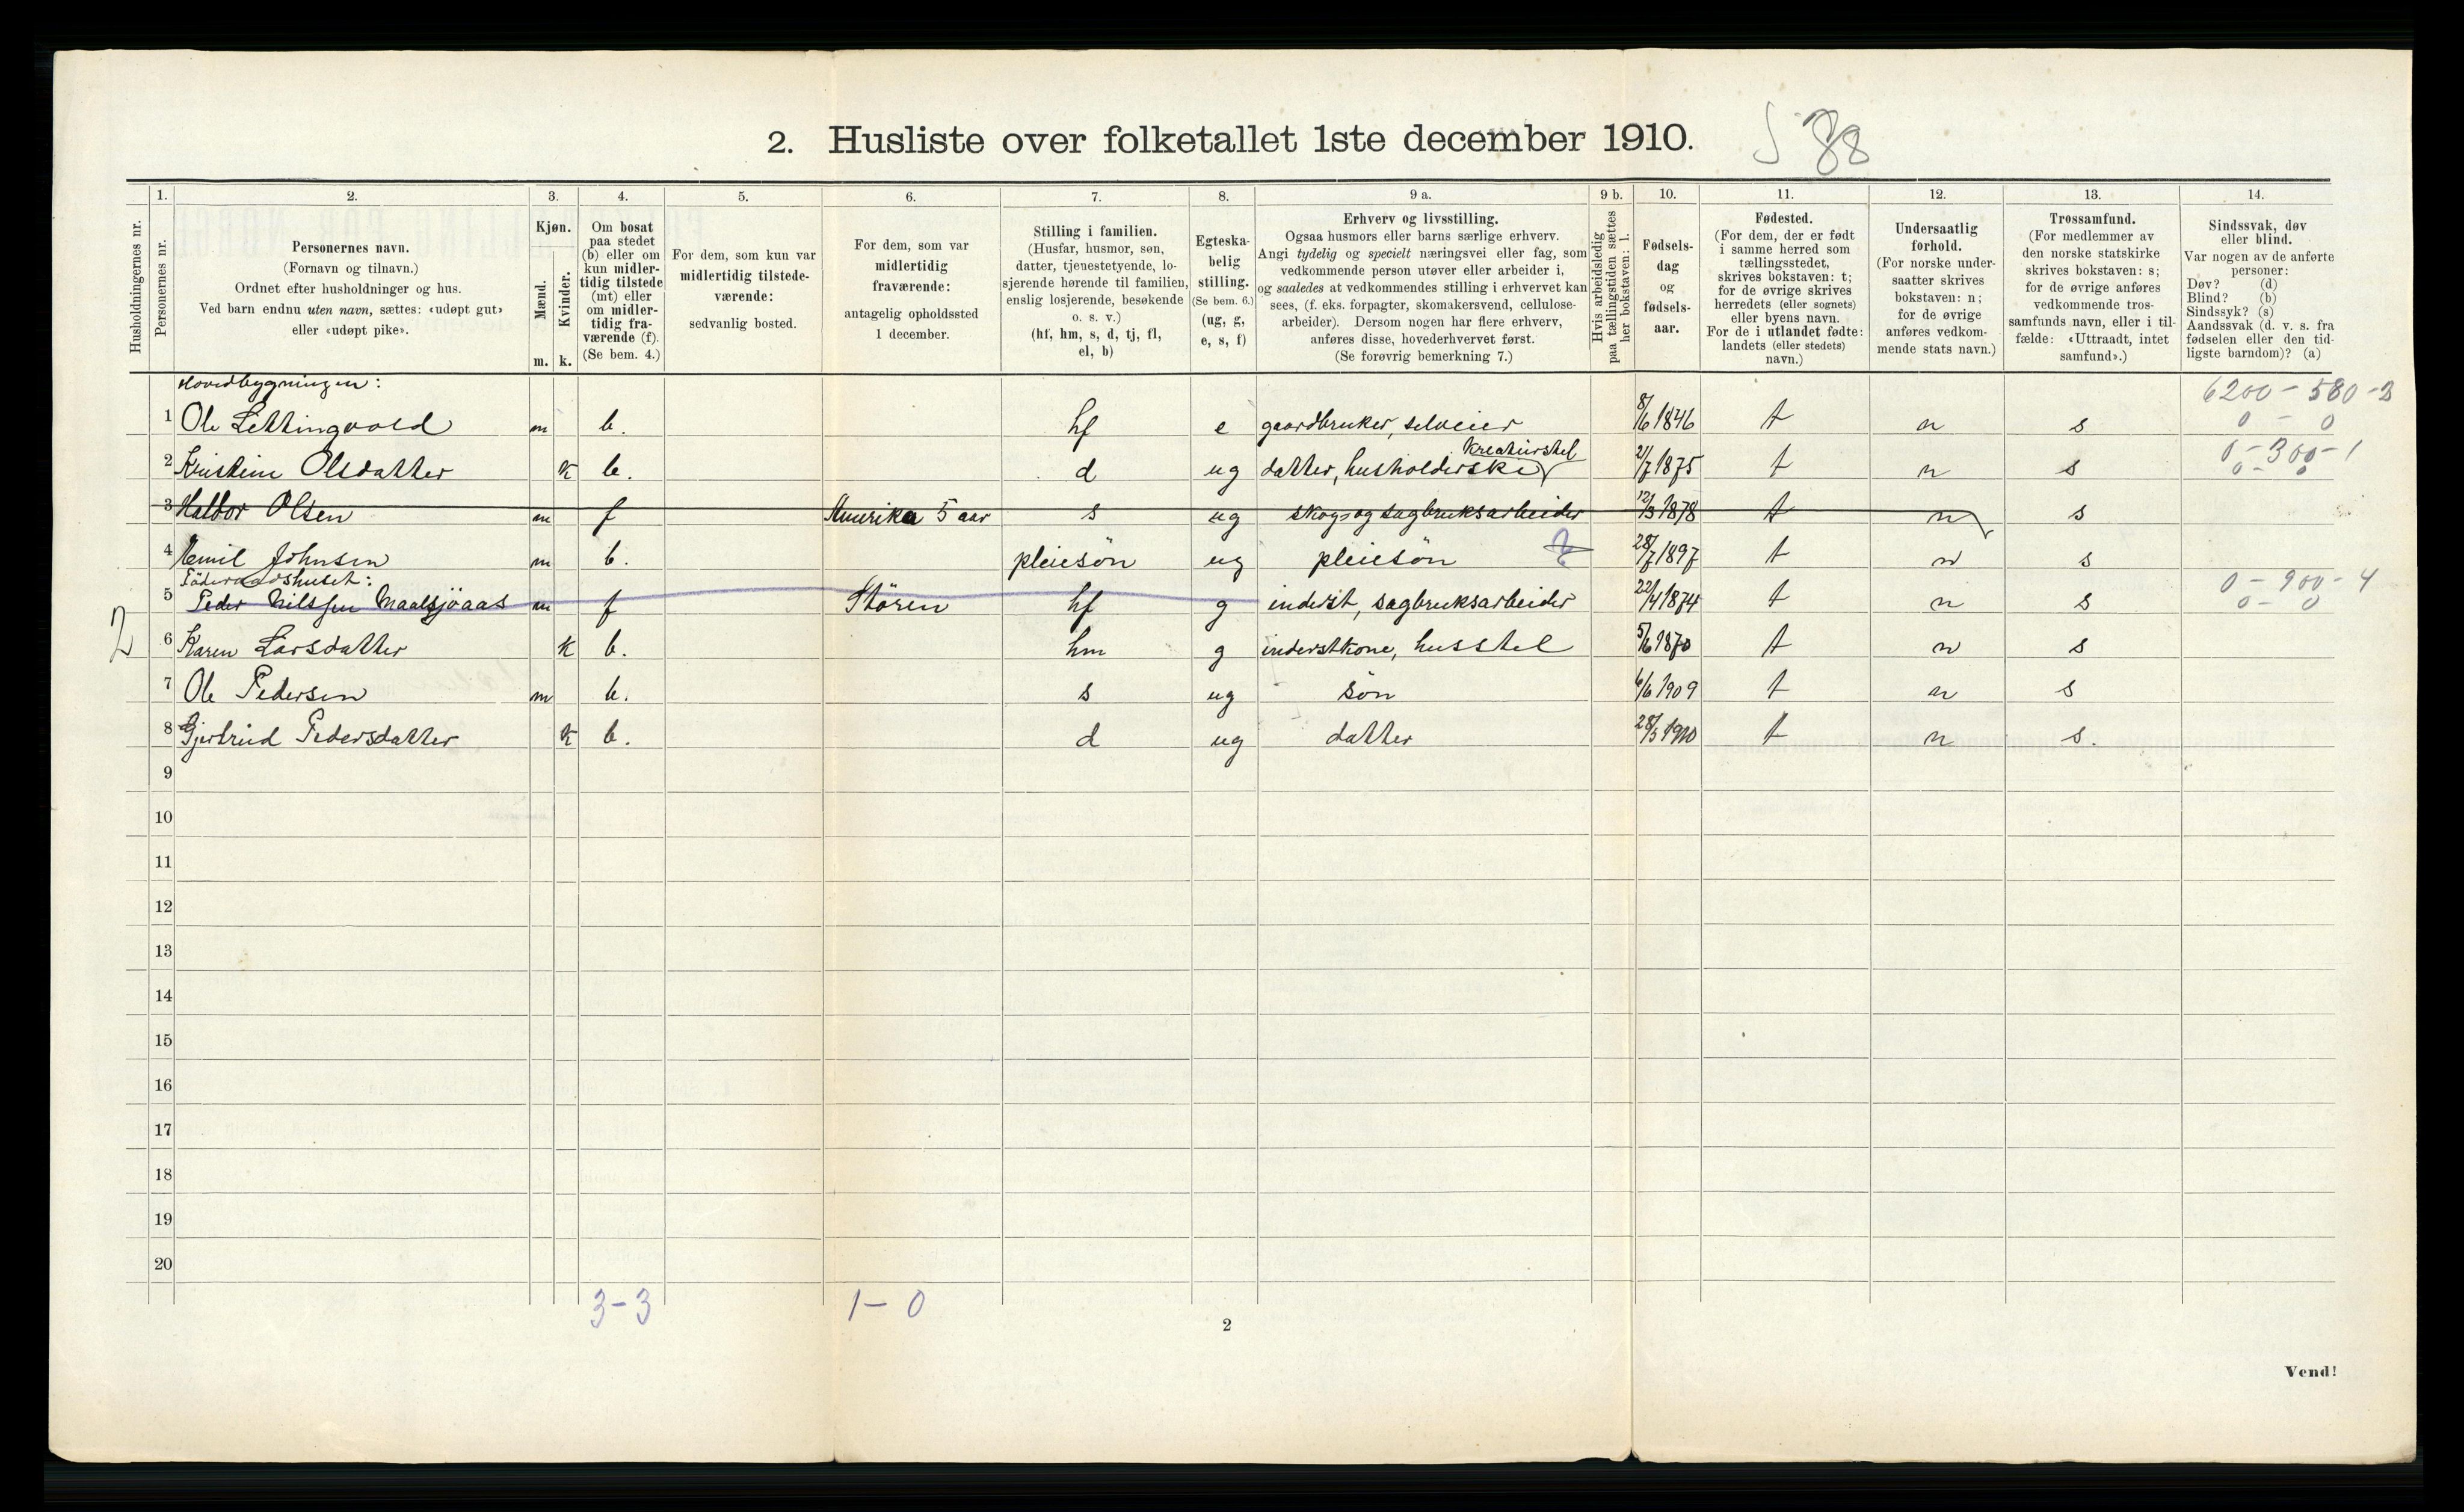 2. Husliste over folketallet 1ste december 1910.
88
1.
2.
3.
4.
5.
6.
7.
8.
9 a.
9 b.
10.
11.
12.
13.
14.
Husholdningernes nr.
Personernes nr.
Personernes navn.
(Fornavn og tilnavn.)
Ordnet efter husholdninger og hus.
Ved barn endnu uten navn, sættes: «udøpt gut»
eller «udøpt pike».
Kjøn.
Mænd.
Kvinder.
m. k.
Om bosat
paa stedet
(b) eller om
kun midler-
tidig tilstede
(mt) eller
om midler-
tidig fra-
værende (f).
(Se bem. 4.)
For dem, som kun var
midlertidig tilstede-
værende:
sedvanlig bosted.
For dem, som var
midlertidig
fraværende:
antagelig opholdssted
1 december.
Stilling i familien.
(Husfar, husmor, søn,
datter, tjenestetyende, lo-
sjerende hørende til familien,
enslig losjerende, besøkende
o. s. v.)
(hf, hm, s, d, tj, fl,
el, b)
Egteska-
belig
stilling.
(Se bem. 6.)
(ug, g,
e, s, f)
Erhverv og livsstilling.
Ogsaa husmors eller barns særlige erhverv.
Angi tydelig og specielt næringsvei eller fag, som
vedkommende person utøver eller arbeider i,
og saaledes at vedkommendes stilling i erhvervet kan
sees, (f. eks. forpagter, skomakersvend, cellulose-
arbeider). Dersom nogen har flere erhverv,
anføres disse, hovederhvervet først.
(Se forøvrig bemerkning 7.)
Hvis arbeidsledig
paa tællingstiden sættes
her bokstaven: l.
Fødsels-
dag
og
fødsels-
aar.
Fødested.
(For dem, der er født
i samme herred som
tællingsstedet,
skrives bokstaven: t;
for de øvrige skrives
herredets (eller sognets)
eller byens navn.
For de i utlandet fødte:
landets (eller stedets)
navn.)
Undersaatlig
forhold.
(For norske under-
saatter skrives
bokstaven: n;
for de øvrige
anføres vedkom-
mende stats navn.)
Trossamfund.
(For medlemmer av
den norske statskirke
skrives bokstaven: s;
for de øvrige anføres
vedkommende tros-
samfunds navn, eller i til-
fælde: «Uttraadt, intet
samfund».)
Sindssvak, døv
eller blind.
Var nogen av de anførte
personer:
Døv? (d)
Blind? (b)
Sindssyk? (s)
Aandssvak (d. v. s. fra
fødselen eller den tid-
ligste barndom)? (a)
Hovedbygningen:
6200 - 580 - 3
1 Ole Lettingvold m b. hf e gaardbruker, selveier 8/6 1846 t n s 0 - 0
Kreaturstel
0 - 300 - 1
2 Kristine Olsdatter k b. d ug datter, husholderske 21/7 1875 t n s 0 - 0
3 Haldor Olsen m f Amerika 5 aar s ug skogs og sagbruksarbeider 12/3 1878 t n s
4 Emil Johnsen m b. pleiesön ug pleiesön 28/7 1897 t n s
Föderaadshuset:
0 - 900 - 4
5 Peder Nilssen Maalsjöaas m f Stören hf g inderst, sagbruksarbeider 22/4 1874 t n s 0 - 0
2
6 Karen Larsdatter k b. hm g inderstkone, husstel 5/6 1870 t n s
7 Ole Pedersen m b. s ug sön 6/6 1909 t n s
8 Gjertrud Pedersdatter k b. d ug datter 28/5 1910 t n s.
9
10
11
12
13
14
15
16
17
18
19
20
3 - 3
1 - 0
2
Vend!